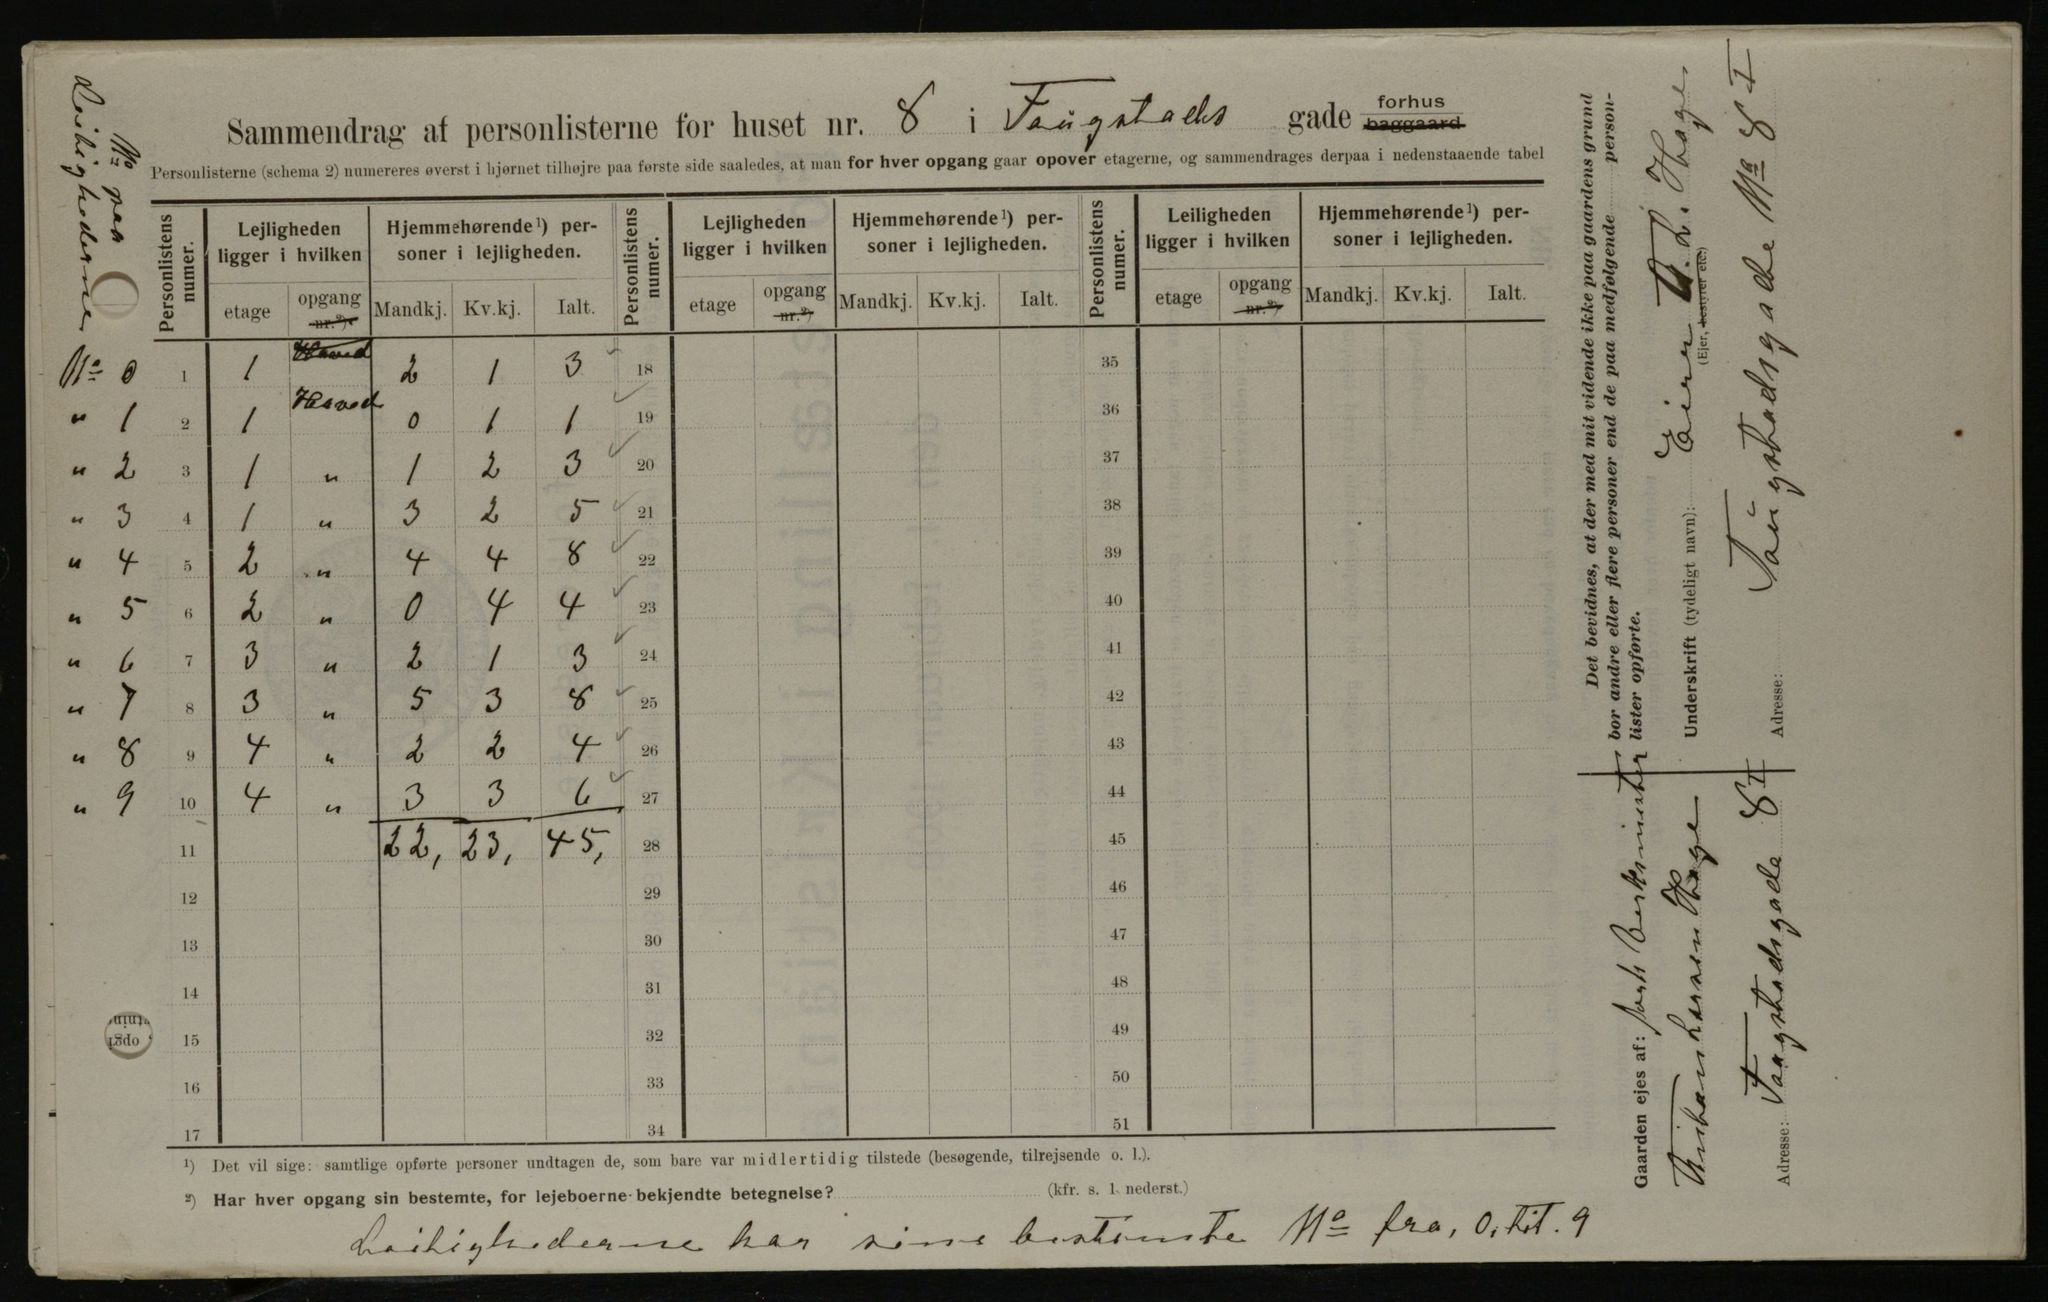 No paa
Leilighederne
Sammendrag af personlisterne for huset nr. 8 i Taugstads gade forhus baggaard
Personlisterne (schema 2) numereres øverst i hjørnet tilhøjre paa første side saaledes, at man for hver opgang gaar opover etagerne, og sammendrages derpaa i nedenstaaende tabel
Personlistens numer. Lejligheden ligger i hvilken Hjemmehørende ¹) personer i lejligheden. Personlistens numer. Lejligheden ligger i hvilken Hjemmehørende ¹) personer i lejligheden. Personlistens numer. Leiligheden ligger i hvilken Hjemmehørende ¹) personer i lejligheden.
etage opgang nr.²) Mandkj. Kv.kj. Ialt. etage opgang nr.²) Mandkj. Kv.kj. Ialt. etage opgang nr.²) Mandkj. Kv.kj. Ialt.
No 0 1 1 Hoved 2 1 3 18 35
" 1 2 1 Hoved 0 1 1 19 36
" 2 3 1 " 1 2 3 20 37
" 3 4 1 " 3 2 5 21 38
" 4 5 2 " 4 4 8 22 39
" 5 6 2 " 0 4 4 23 40
" 6 7 3 " 2 1 3 24 41
" 7 8 3 " 5 3 8 25 42
" 8 9 4 " 2 2 4 26 43
" 9 10 4 " 3 3 6 27 44
11 22, 23, 45, 28 45
12 29 46
13 30 47
14 31 48
15 32 49
16 33 50
17 34 51
¹) Det vil sige: samtlige opførte personer undtagen de, som bare var midlertidig tilstede (besøgende, tilrejsende o. l.).
²) Har hver opgang sin bestemte, for lejeboerne bekjendte betegnelse? (kfr. s. 1 nederst.)
Leilighederne har sine bestemte No fra, 0, til. 9
Det bevidnes, at der med mit vidende ikke paa gaardens grund
bor andre eller flere personer end de paa medfølgende person-
lister opførte.
Underskrift (tydeligt navn): Eier Th. L. Hage
(Ejer, bestyrer etc.)
Adresse: Taugstadsgade No 8 I
Gaarden ejes af:
Thistian Larsen Hage
Adresse: Taugstadsgade 8 I